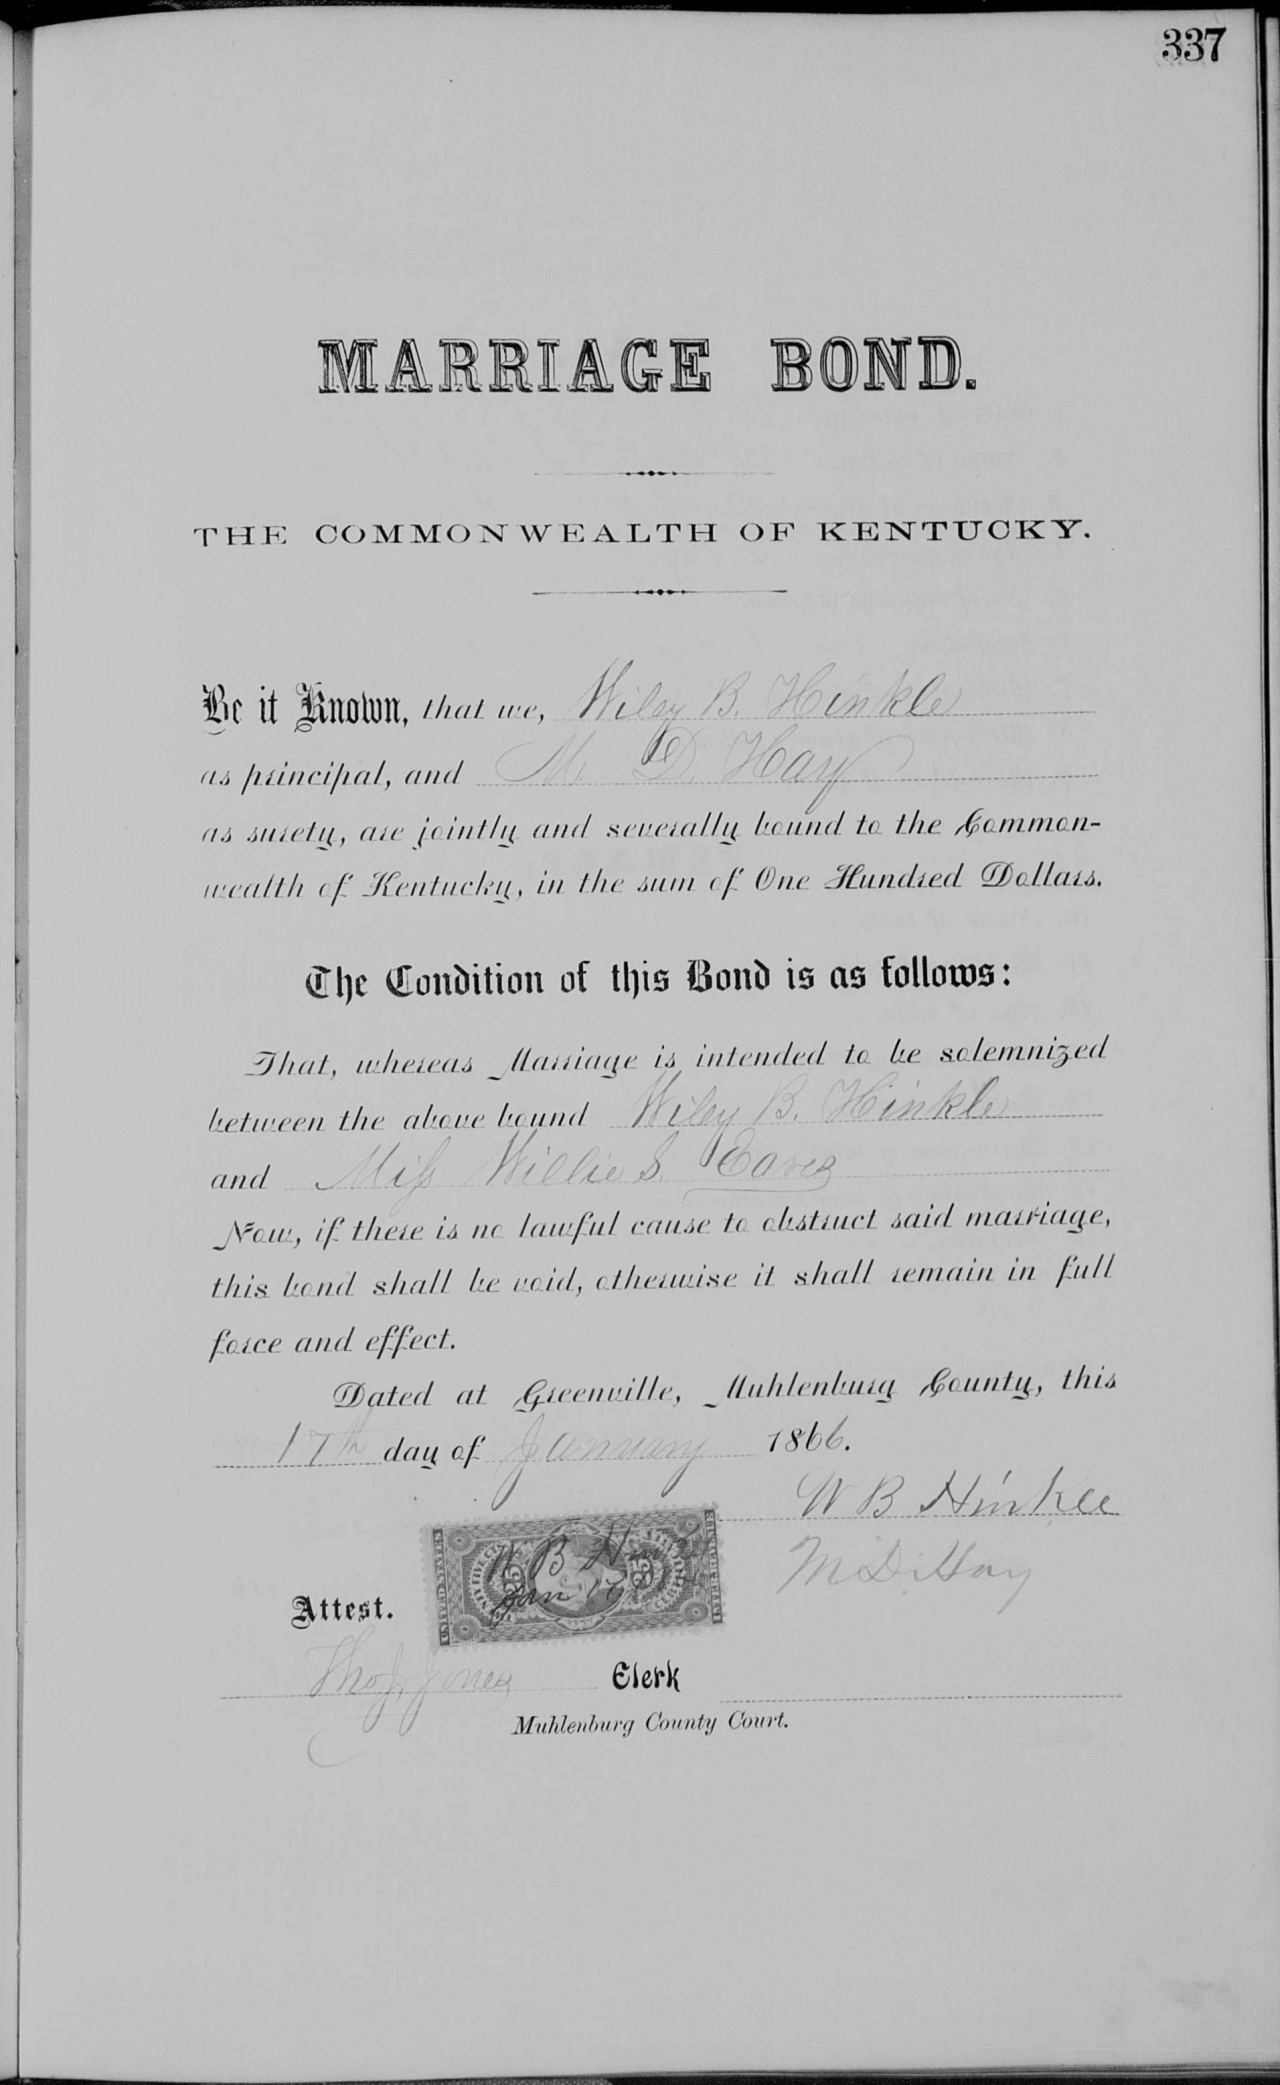 337
MARRIAGE BOND.
THE COMMONWEALTH OF KENTUCKY.
Be it Known, that we, Wiley B. Hinkle
as principal, and M. D. Hay
as surety, are jointly and severally bound to the Common-
wealth of Kentucky, in the sum of One Hundred Dollars.
The Condition of this Bond is as follows:
That, whereas Marriage is intended to be solemnized
between the above bound Wiley B. Hinkle
and Miss Willie S. Eaves
Now, if there is no lawful cause to obstruct said marriage,
this bond shall be void, otherwise it shall remain in full
force and effect.
Dated at Greenville, Muhlenburg County, this
17th day of January 1866.
W B Hinkle
M D Hay
UNITED STATES
INTER. REVENUE
25 25
W B Hinkle
Jan 17
Attest.
Tho. J. Jones Clerk
Muhlenburg County Court.